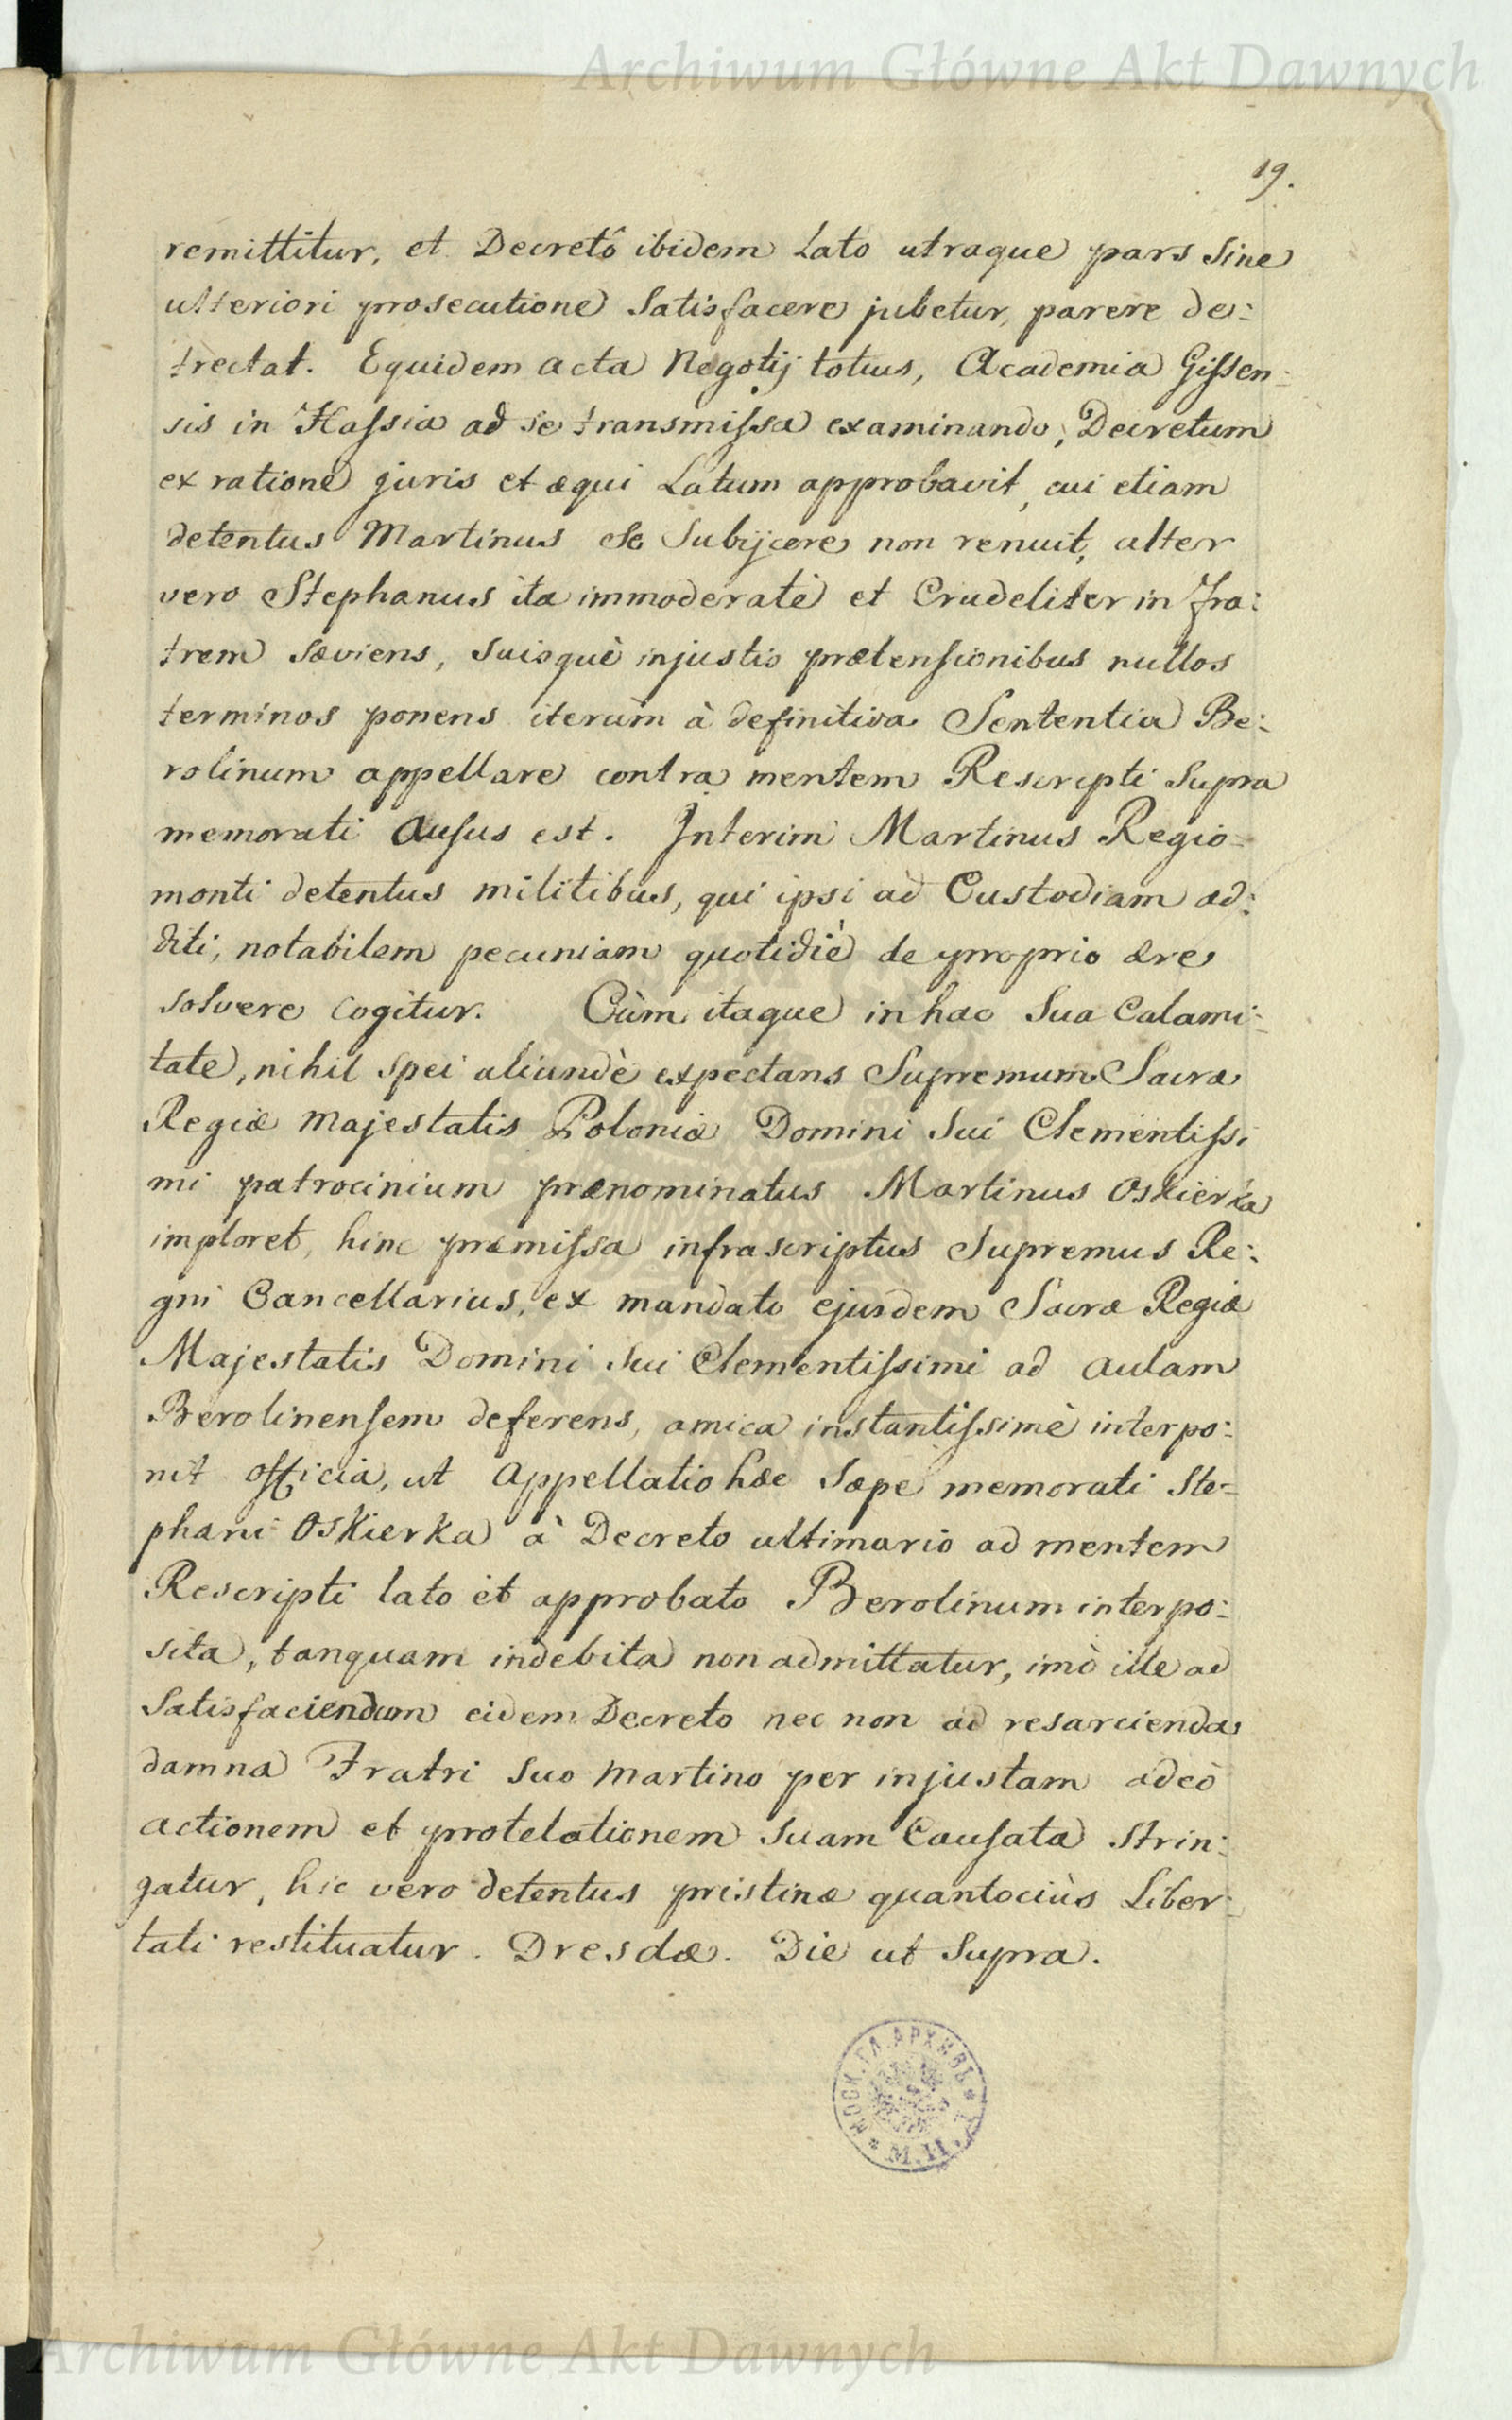 Archiwum Główne Akt Dawnych
19.
remittitur, et Decretô ibidem lato utraque pars sine
ulteriori prosecutione satisfacere jubetur, parere de:
trectat. Equidem acta Negotij totius, Academia Gissen:
sis in Hassia ad se transmissa examinando, Decretum
ex ratione juris et æqui Latum approbavit, cui etiam
detentus Martinus se subijcere non renuit, alter
vero Stephanus ita immoderatè et Crudeliter in Fra:
trem sæviens, suisquè injustis prætensionibus nullos
terminos ponens iterùm à definitiva Sententia Be:
rolinum appellare contra mentem Rescripti supra
memorati ausus est. Interim Martinus Regio=
monti detentus militibus, qui ipsi ad Custodiam ad:
diti, notabilem pecuniam quotidiè de proprio ære
solvere cogitur. Cùm itaque in hac sua Calami:
tate, nihil spei aliundè expectans Supremum Sacræ
Regiæ Majestatis Poloniæ Domini sui Clementissi
mi patrocinium prænominatus Martinus Oskierka
imploret, hinc præmissa infrascriptus Supremus Re:
gni Cancellarius, ex mandato ejusdem Sacræ Regiæ
Majestatis Domini sui Clementissimi ad aulam
Berolinensem deferens, amica instantissimè interpo:
nit officia, ut appellatio hæc sæpe memorati Ste=
phani Oskierka à Decreto ultimario ad mentem
Rescripti lato et approbato Berolinum interpo:
sita, tanquam indebita non admittatur, imò ille ad
satisfaciendum eidem Decreto nec non ad resarcienda
damna Fratri suo Martino per injustam adeò
actionem et protelationem suam Causata strin:
gatur, hic vero detentus pristinæ quantociùs Liber:
tati restituatur. Dresdæ. Die ut supra.
МОСК. ГЛ. АРХИВЪ
М. И. Д.
Archiwum Główne Akt Dawnych